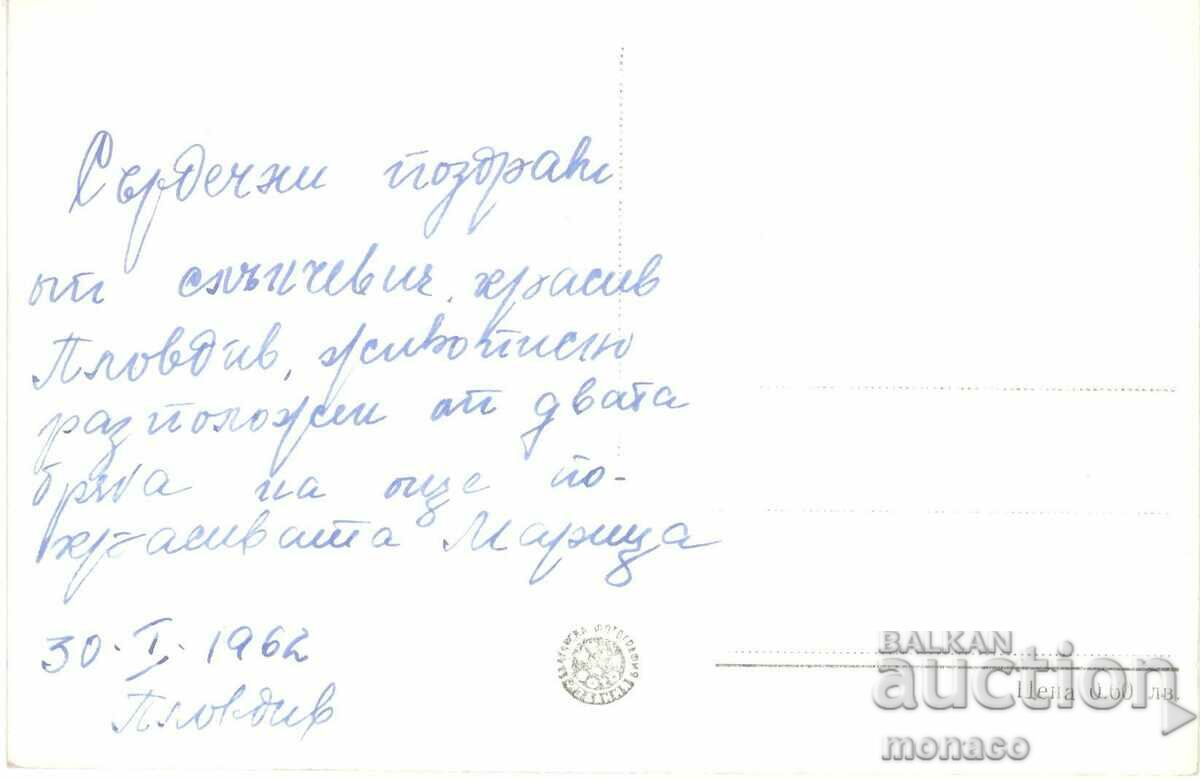 Сърдечни поздрави
от слънчевия, красив
Пловдив, живописно
разположен от двата
бряга на още по-
красивата Марица
30. I. 1962
Пловдив
Цена 0.60 лв.
BALKAN
auction
monaco